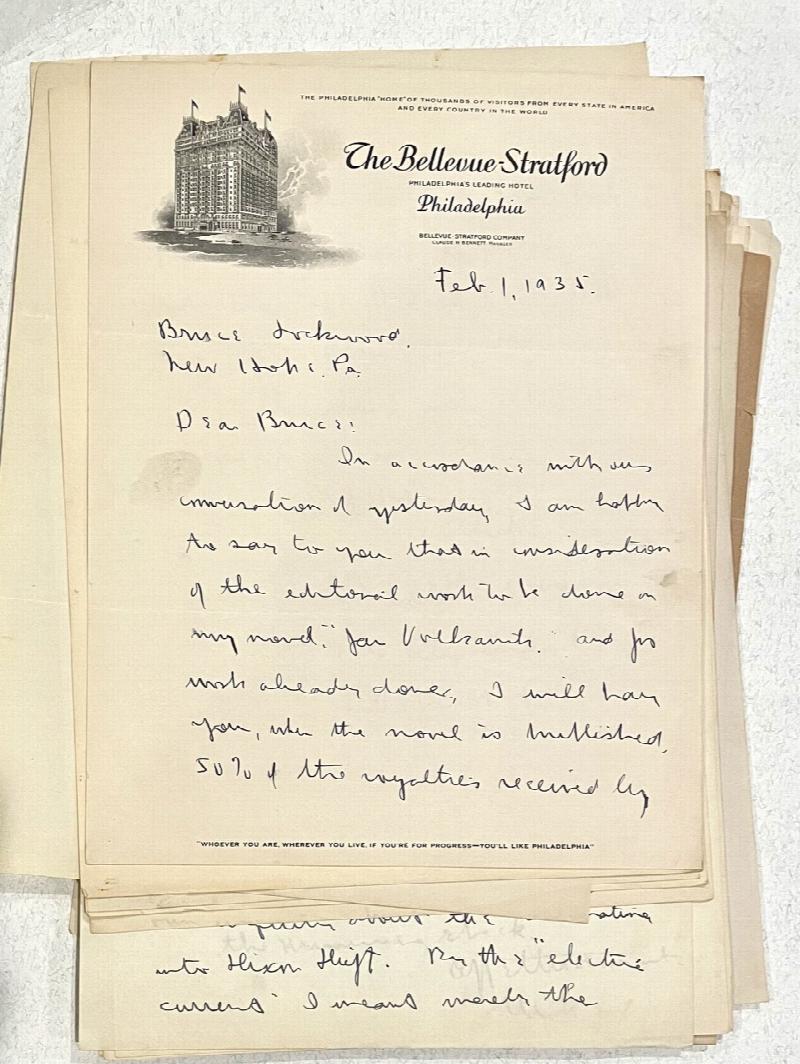 THE PHILADELPHIA "HOME" OF THOUSANDS OF VISITORS FROM EVERY STATE IN AMERICA
AND EVERY COUNTRY IN THE WORLD
The Bellevue-Stratford
PHILADELPHIA'S LEADING HOTEL
Philadelphia
BELLEVUE-STRATFORD COMPANY
CLAUDE H BENNETT MANAGER
Feb. 1, 1935.
Bruce Lockwood,
New Hope, Pa.
Dear Bruce:
In accordance with our
conversation of yesterday, I am happy
to say to you that in consideration
of the editorial work to be done on
my novel, "Jan and for
work already done, I will pay
you, when the novel is published,
50% of the royalties received by
"WHOEVER YOU ARE, WHEREVER YOU LIVE, IF YOU'RE FOR PROGRESS—YOU'LL LIKE PHILADELPHIA"
about the
into Hixon Hight. By the "electric
current" I meant merely the